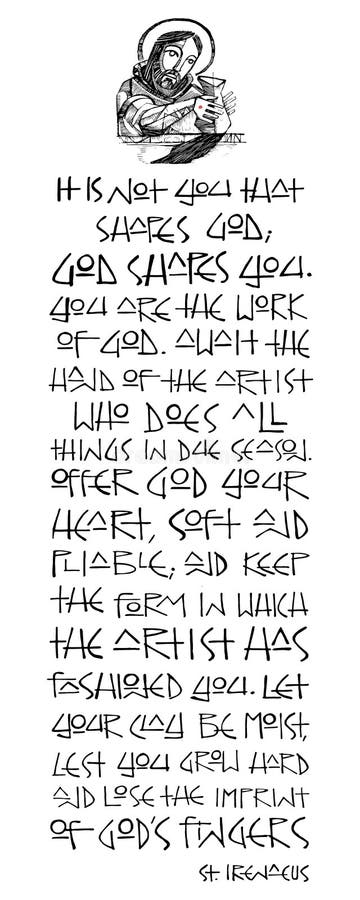 IT IS NOT YOU THAT
SHAPES GOD;
GOD SHAPES YOU.
YOU ARE THE WORK
OF GOD. AWAIT THE
HAND OF THE ARTIST
WHO DOES ALL
THINGS IN DUE SEASON.
OFFER GOD YOUR
HEART, SOFT AND
PLIABLE; AND KEEP
THE FORM IN WHICH
THE ARTIST HAS
FASHIONED YOU. LET
YOUR CLAY BE MOIST,
LEST YOU GROW HARD
AND LOSE THE IMPRINT
OF GOD'S FINGERS
ST. IRENAEUS